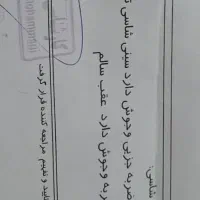 شاسی:
ضربه جزیی وجوش دارد سینی شاسی
ربه وجوش دارد عقب سالم
ایید و تفهیم مراجعه کننده قرار گرفت